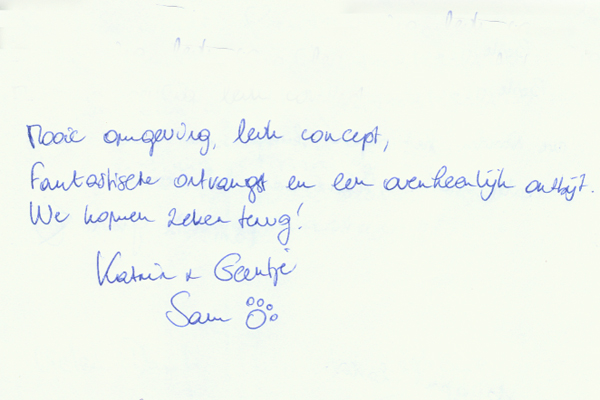 Mooie omgeving, leuk concept,
Fantastische ontvangst en een overheerlijk ontbijt.
We komen zeker terug!
Katrin & Geertje
Sam